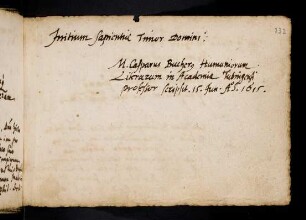 331
Initium sapientiæ Timor Domini.
M. Casparus Bucherus Humaniorum
Literarum in Academia Tubingensi
professor scripsit. 15. Jun. Aō. 1615.